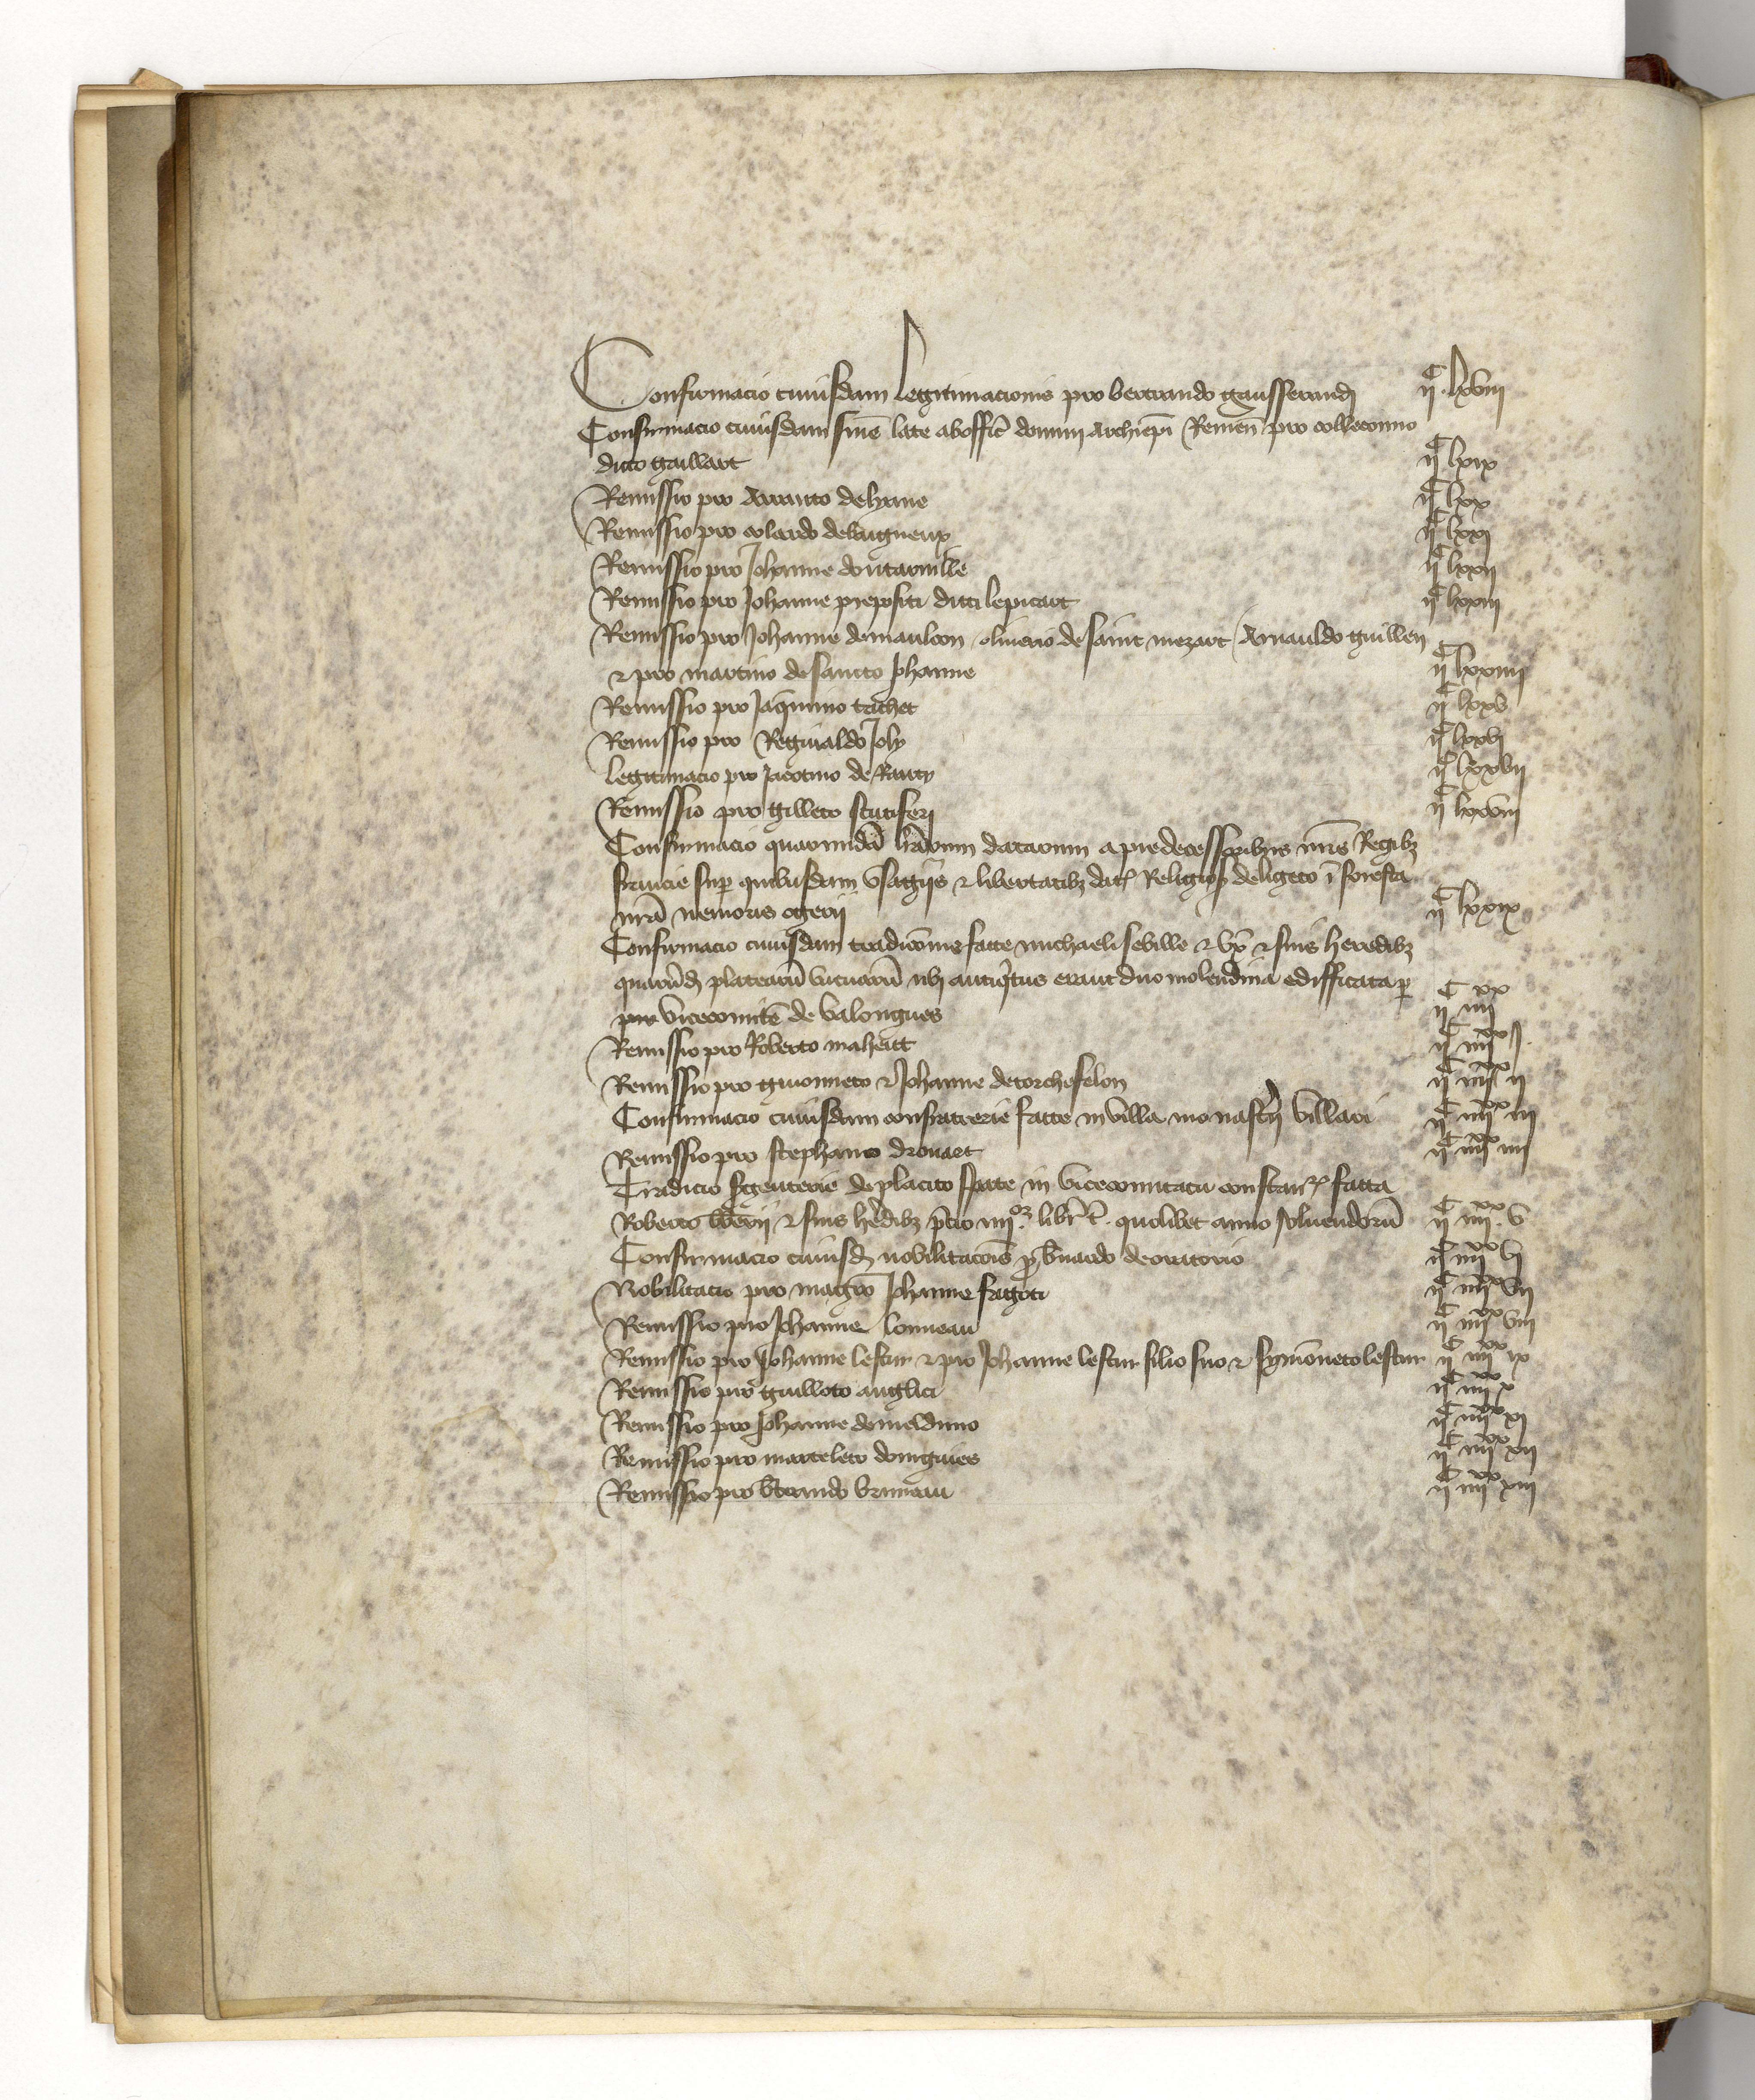 Confirmacio cuiusdam legitimacionis pro bertrando gausserandi ijC lxviij
Confirmacio cuiusdam sniē late ab offic̄ domini Archiep̄i Remen̄ pro collecono
dicto guillart ijC lxix
Remissio pro de lyane ijC lxx
Remissio pro colardo ijC lxxj
Remissio pro Johanne doutarville ijC lxxij
Remissio pro Johanne prepositi dicti lepicart ijC lxxiij
Remissio pro Johanne de mauleon oliverio de saint mezart Arnauldo guillen
& pro martino de sancto Johanne ijC lxxiiij
Remissio pro Jaquimino tachet ijC lxxv
Remissio pro Reginaldo Joly ijC lxxvj
legitimacio pro Jacotino de Raucy ijC lxxvij
Remissio pro gilleto scutiferi ijC lxxviij
Confirmacio quarumdā lrārum datarum a predecessoribus nr̄is Regibz
francie sup quibusdam usagiis & libertatibz dat Religios de ligeto ī foresta
nrā nemoris ogerij ijC lxxix
Confirmacio cuiusdam tradicōnis facte michaeli sebille & ux̄ & suis heredibz
quarūd platearū vacuarū ubi antiqitus erant duo molendina edifficata p
per vicecomitē de Valongnes ijC iiijxx
Remissio pro Roberto maheut ijC iiijxx j
Remissio pro guionneto & Johanne de torchefelon ijC iiijxx ij
Confirmacio cuiusdam confratrerie facte in villa monasterij villari ijC iiijxx iij
Remissio pro stephano drouart ijC iiijxx iiij
Tradicio sergenterie de placito in vicecomitatu constanc facta
Roberto & suis hedibz pcio iiijor libr t quolibet anno solvendorū ijC iiijxx v
Confirmacio cuiusd nobilitacōis p bnardo de oratorio ijC iiijxx vj
Nobilitacio pro magrō Johanne fagoti ijC iiijxx vij
Remissio pro Johanne lonneau ijC iiijxx viij
Remissio pro Johanne lescur & pro Johanne lescur filio suo & symōneto lescur ijC iiijxx ix
Remissio pro guilloto anglici ijC iiijxx x
Remissio pro Johanne de melduno ijC iiijxx xj
Remissio pro marteleto domgnies ijC iiijxx xij
Remissio pro btrando bruneau ijC iiijxx xiij